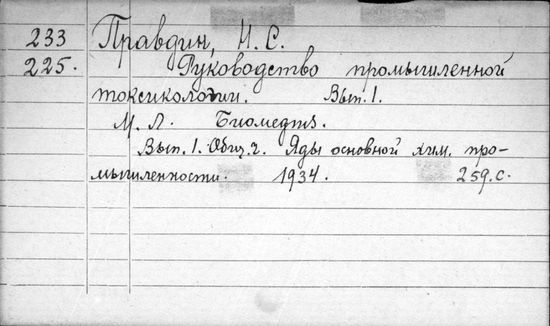 233 Правдин, Н. С.
225. Руководство промышленной
токсикологии. Вып. 1.
М. Л. Биомедгиз.
Вып. 1. Общ. ч. Яды основной хим. про-
мышленности. 1934. 259. с.